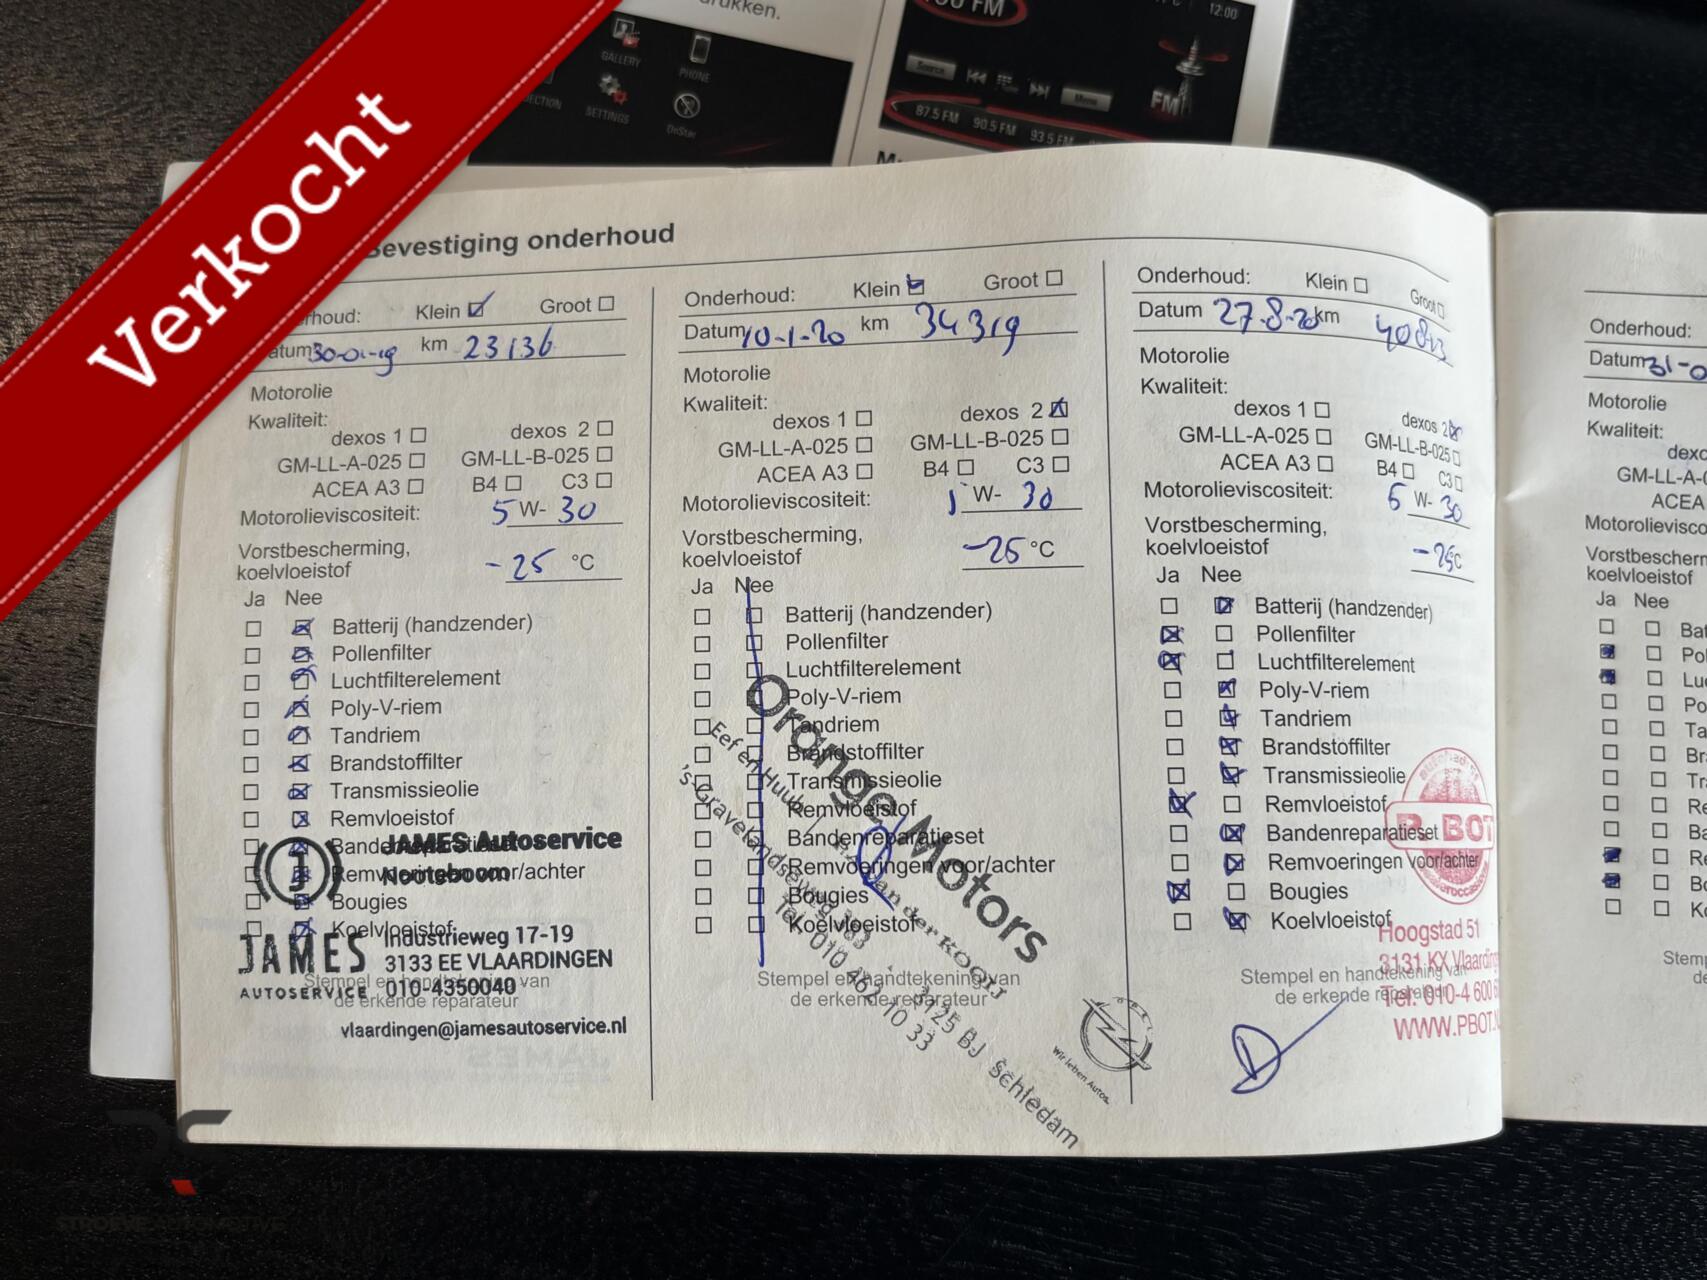 Verkocht
drukken.
GALLERY
PHONE
SETTINGS
OnStar
FM
12:00
Source
Menu
FM
87.5 FM 90.5 FM 93.5 FM
Bevestiging onderhoud
Klein Groot
30-01-19 km 23136
Motorolie
Kwaliteit:
dexos 1 dexos 2
GM-LL-A-025 GM-LL-B-025
ACEA A3 B4 C3
Motorolieviscositeit: 5 W- 30
Vorstbescherming,
koelvloeistof -25 °C
Ja Nee
Batterij (handzender)
Pollenfilter
Luchtfilterelement
Poly-V-riem
Tandriem
Brandstoffilter
Transmissieolie
Remvloeistof
Bandenreparatieset
Remvoeringen voor/achter
Bougies
Koelvloeistof
Stempel en handtekening van
de erkende reparateur
JAMES Autoservice
Nootsboom
JAMES
AUTOSERVICE
Industrieweg 17-19
3133 EE VLAARDINGEN
010-4350040
vlaardingen@jamesautoservice.nl
Onderhoud: Klein Groot
Datum 10-1-20 km 34319
Motorolie
Kwaliteit:
dexos 1 dexos 2
GM-LL-A-025 GM-LL-B-025
ACEA A3 B4 C3
Motorolieviscositeit: W- 30
Vorstbescherming,
koelvloeistof -25 °C
Ja Nee
Batterij (handzender)
Pollenfilter
Luchtfilterelement
Poly-V-riem
Tandriem
Brandstoffilter
Transmissieolie
Remvloeistof
Bandenreparatieset
Remvoeringen voor/achter
Bougies
Koelvloeistof
Stempel en handtekening van
de erkende reparateur
Orange Motors
van der Kooij
's Gravelandseweg 383
3125 BJ Schiedam
Tel. 010 462 10 33
Wir leben Autos.
Onderhoud: Klein Groot
Datum 27-8-20 km
Motorolie
Kwaliteit:
dexos 1 dexos 2
GM-LL-A-025 GM-LL-B-025
ACEA A3 B4 C3
Motorolieviscositeit: 5 W- 30
Vorstbescherming,
koelvloeistof -25 °C
Ja Nee
Batterij (handzender)
Pollenfilter
Luchtfilterelement
Poly-V-riem
Tandriem
Brandstoffilter
Transmissieolie
Remvloeistof
Bandenreparatieset
Remvoeringen voor/achter
Bougies
Koelvloeistof
Stempel en handtekening van
de erkende reparateur
P. BOT
Hoogstad 51
3131 KX Vlaardingen
Tel: 010-4 600
WWW.PBOT.N
Onderhoud:
Datum 31-0
Motorolie
Kwaliteit:
dexo
GM-LL-A-0
ACEA
Motorolievisco
Vorstbescherm
koelvloeistof
Ja Nee
Bat
Pol
Luc
Po
Ta
Br
Tra
Re
Ba
Re
Bo
Ko
Stemp
de
STROEVE AUTOMOTIVE